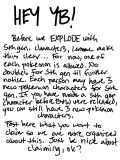 HEY YB!
Before we EXPLODE with
5th gen. characters, lemme make
this clear... For now, one of
each pokemon is allowed. No
doubles for 5th gen til further
notice. Each person may have 3
new pokemon characters for 5th
gen. If you have made a 5th gen
character before B/W were released,
you can still have 3 new pokemon
characters.
Post here what you want to
claim so we are more organized
about this. Just be nice about
claiming, ok?